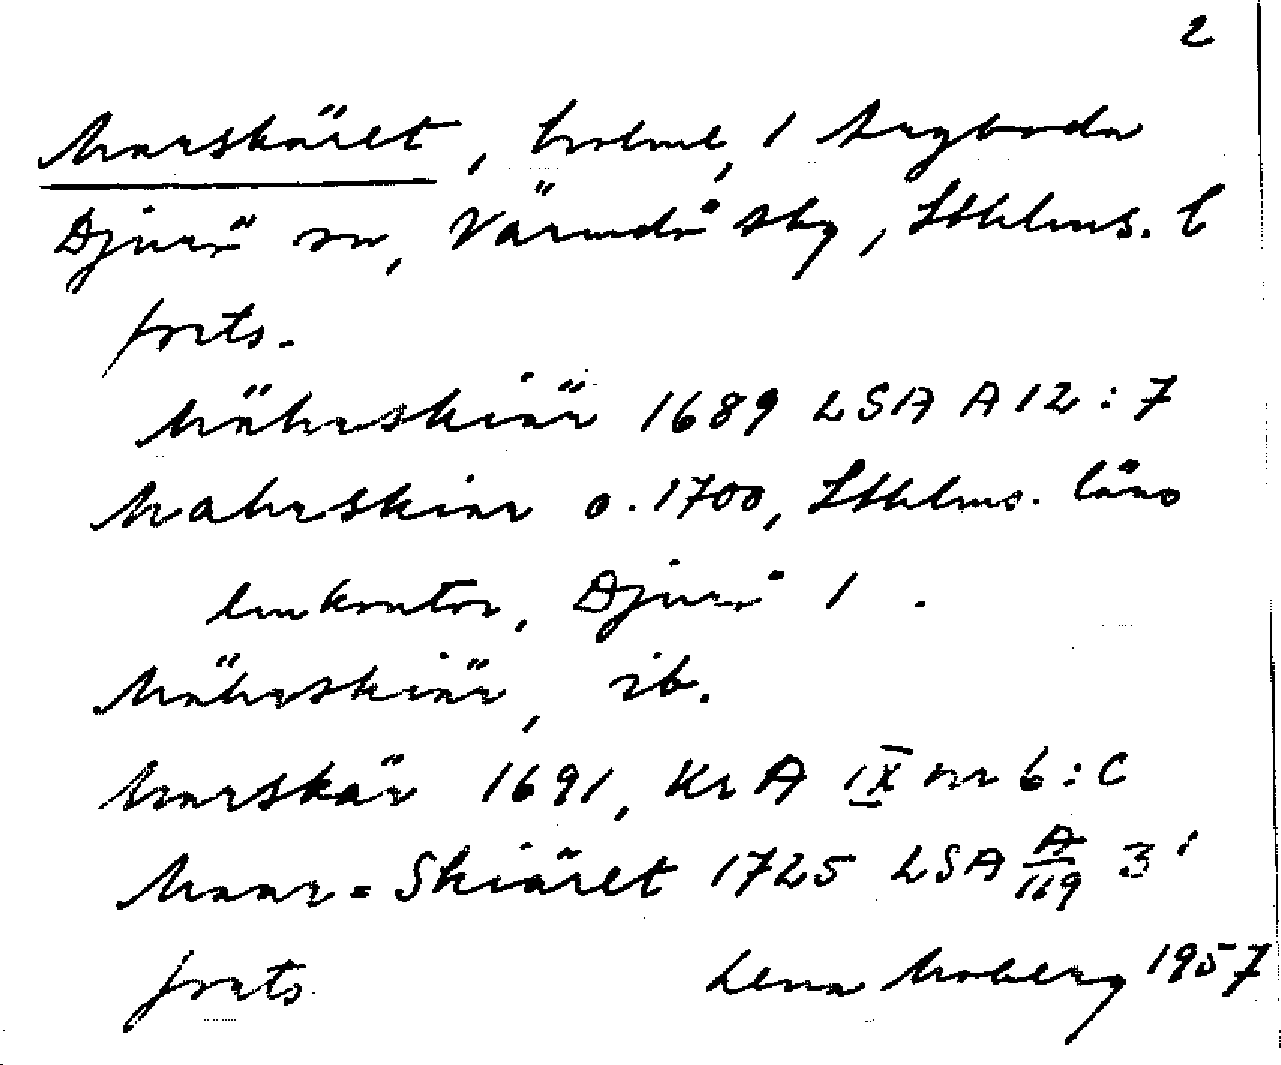 2
Marskäret, holme, 1 Aspboda
Djurö sn, Värmdö skg, Sthlms. l
forts.
Mährskiär 1689 LSA A12:7
Mahrskiär o. 1700, Sthlms. läns
lmkontor, Djurö 1.
Mährskiär, ib.
Marskär 1691, KrA IX nr 6:C
Maar=Skiäret 1725 LSA A/119 3¹
forts. Lena Moberg 1957